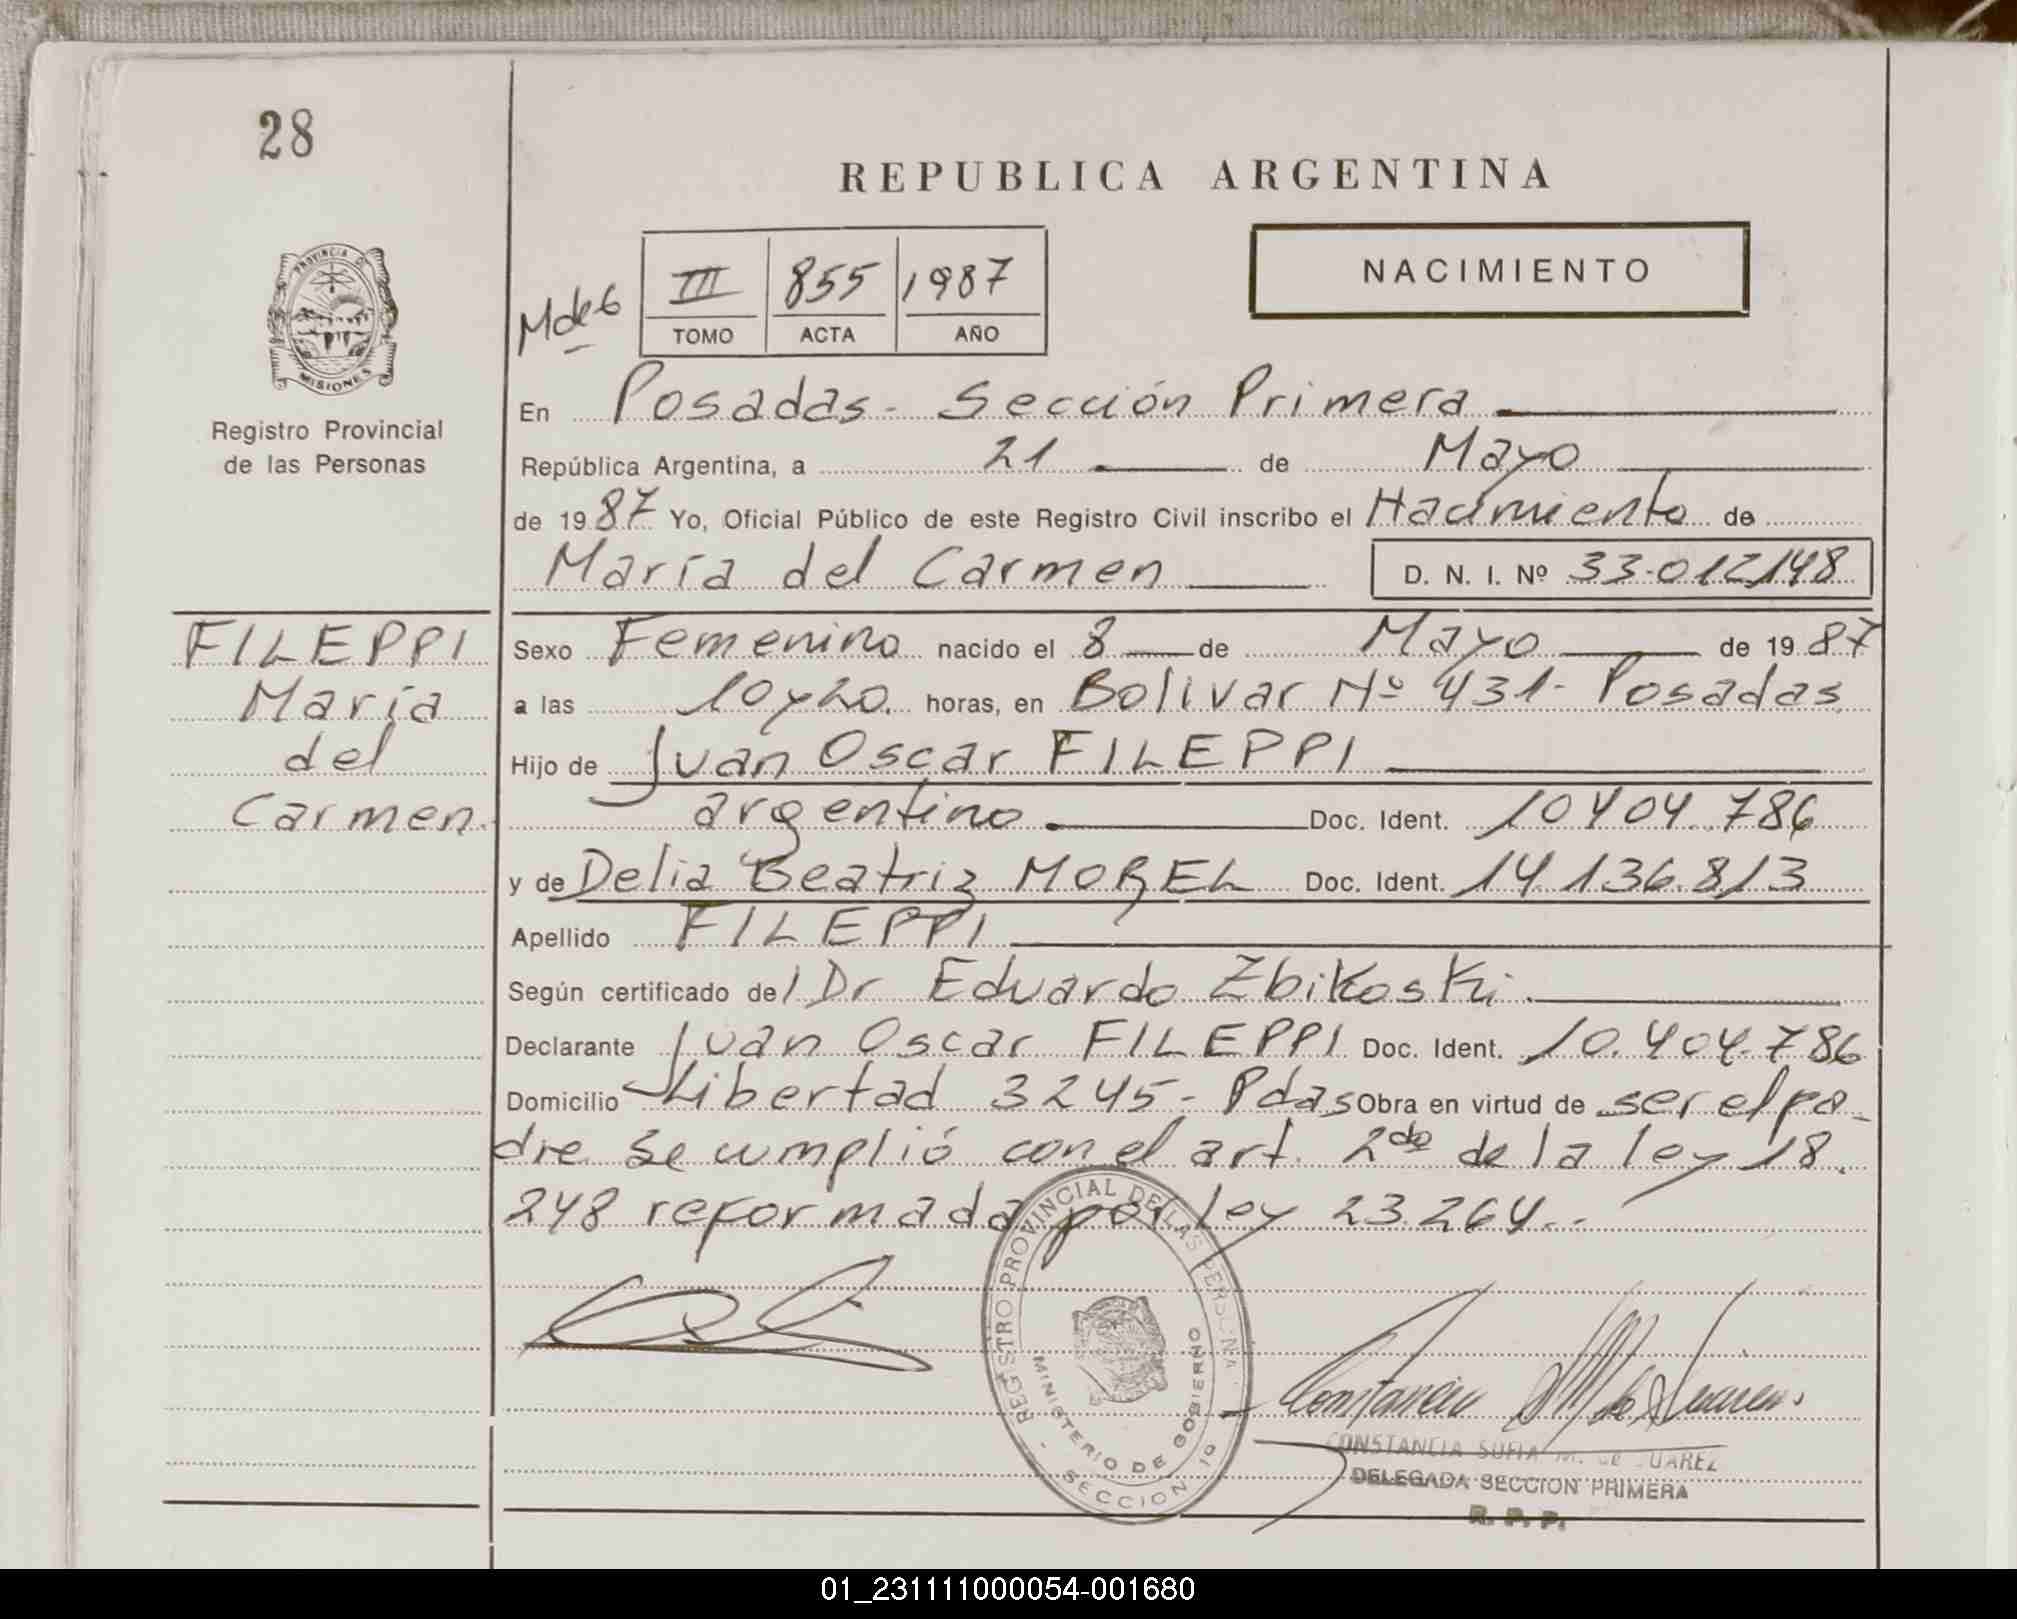 28
REPUBLICA ARGENTINA
PROVINCIA D
MISIONES
Registro Provincial
de las Personas
III 855 1987
TOMO ACTA AÑO
NACIMIENTO
En Posadas - Sección Primera
República Argentina, a 21 de Mayo
de 1987 Yo, Oficial Público de este Registro Civil inscribo el Nacimiento de
María del Carmen D. N. I. Nº 33.012148
FILEPPI
María
del
Carmen.
Sexo Femenino nacido el 8 de Mayo de 1987
a las 10 y 20. horas, en Bolivar Nº 431 - Posadas
Hijo de Juan Oscar FILEPPI
argentino Doc. Ident. 10404.786
y de Delia Beatriz MOREL Doc. Ident. 14.136.813
Apellido FILEPPI
Según certificado del Dr Eduardo Zbikoski.
Declarante Juan Oscar FILEPPI Doc. Ident. 10.404.786
Domicilio Libertad 3245 - Pdas Obra en virtud de ser el pa-
dre. Se cumplió con el art. 2do de la ley 18.
248 reformada por ley 23.264.-
REGISTRO PROVINCIAL DE LAS PERSONA
MINISTERIO DE GOBIERNO
SECCION 1º
CONSTANCIA SOFIA M. de SUAREZ
DELEGADA SECCION PRIMERA
R. P. P.
01_231111000054-001680